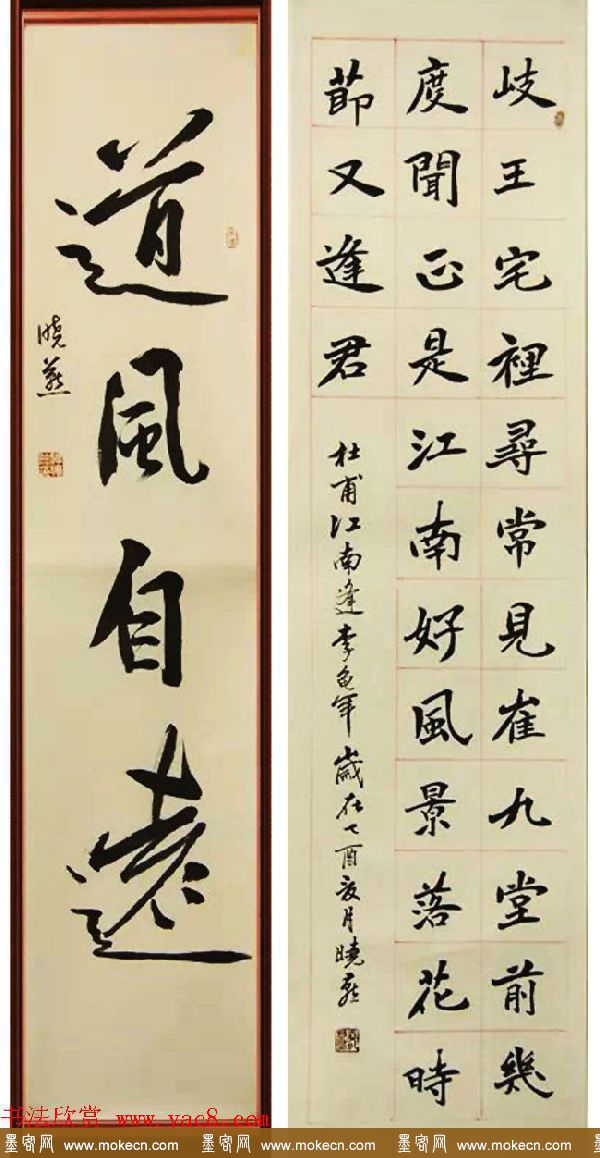 道風自遠
晓燕
岐王宅裡尋常見崔九堂前幾
度聞正是江南好風景落花時
莭又逢君
杜甫江南逢李龟年 歲在乙酉夏月曉燕
书法欣赏 www.yac8.com
墨客网 www.mokecn.com 墨客网 www.mokecn.com 墨客网 www.mokecn.com